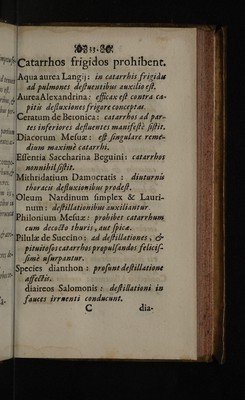 33.
Catarrhos frigidos prohibent.
Aqua aurea Langij: in catarrhis frigidis
ad pulmones defluentibus auxilio est.
Aurea Alexandrina: efficax est contra ca-
pitis defluxiones frigore conceptas.
Ceratum de Betonica: catarrhos ad par-
tes inferiores defluentes manifestè sistit.
Diacorum Mesuæ: est singulare reme-
dium maximè catarrhi.
Essentia Saccharina Beguini: catarrhos
nonnihil sistit.
Mithridatium Damocratis: diuturnis
thoracis defluxionibus prodest.
Oleum Nardinum simplex & Lauri-
num: destillationibus auxiliantur.
Philonium Mesuæ: prohibet catarrhum
cum decocto thuris, aut spicæ.
Pilulæ de Succino: ad destillationes, &
pituitosos catarrhos propulsandos felicis-
simè usurpantur.
Species dianthon: prosunt destillatione
affectis.
diaireos Salomonis: destillationi in
fauces irruenti conducunt.
C dia-